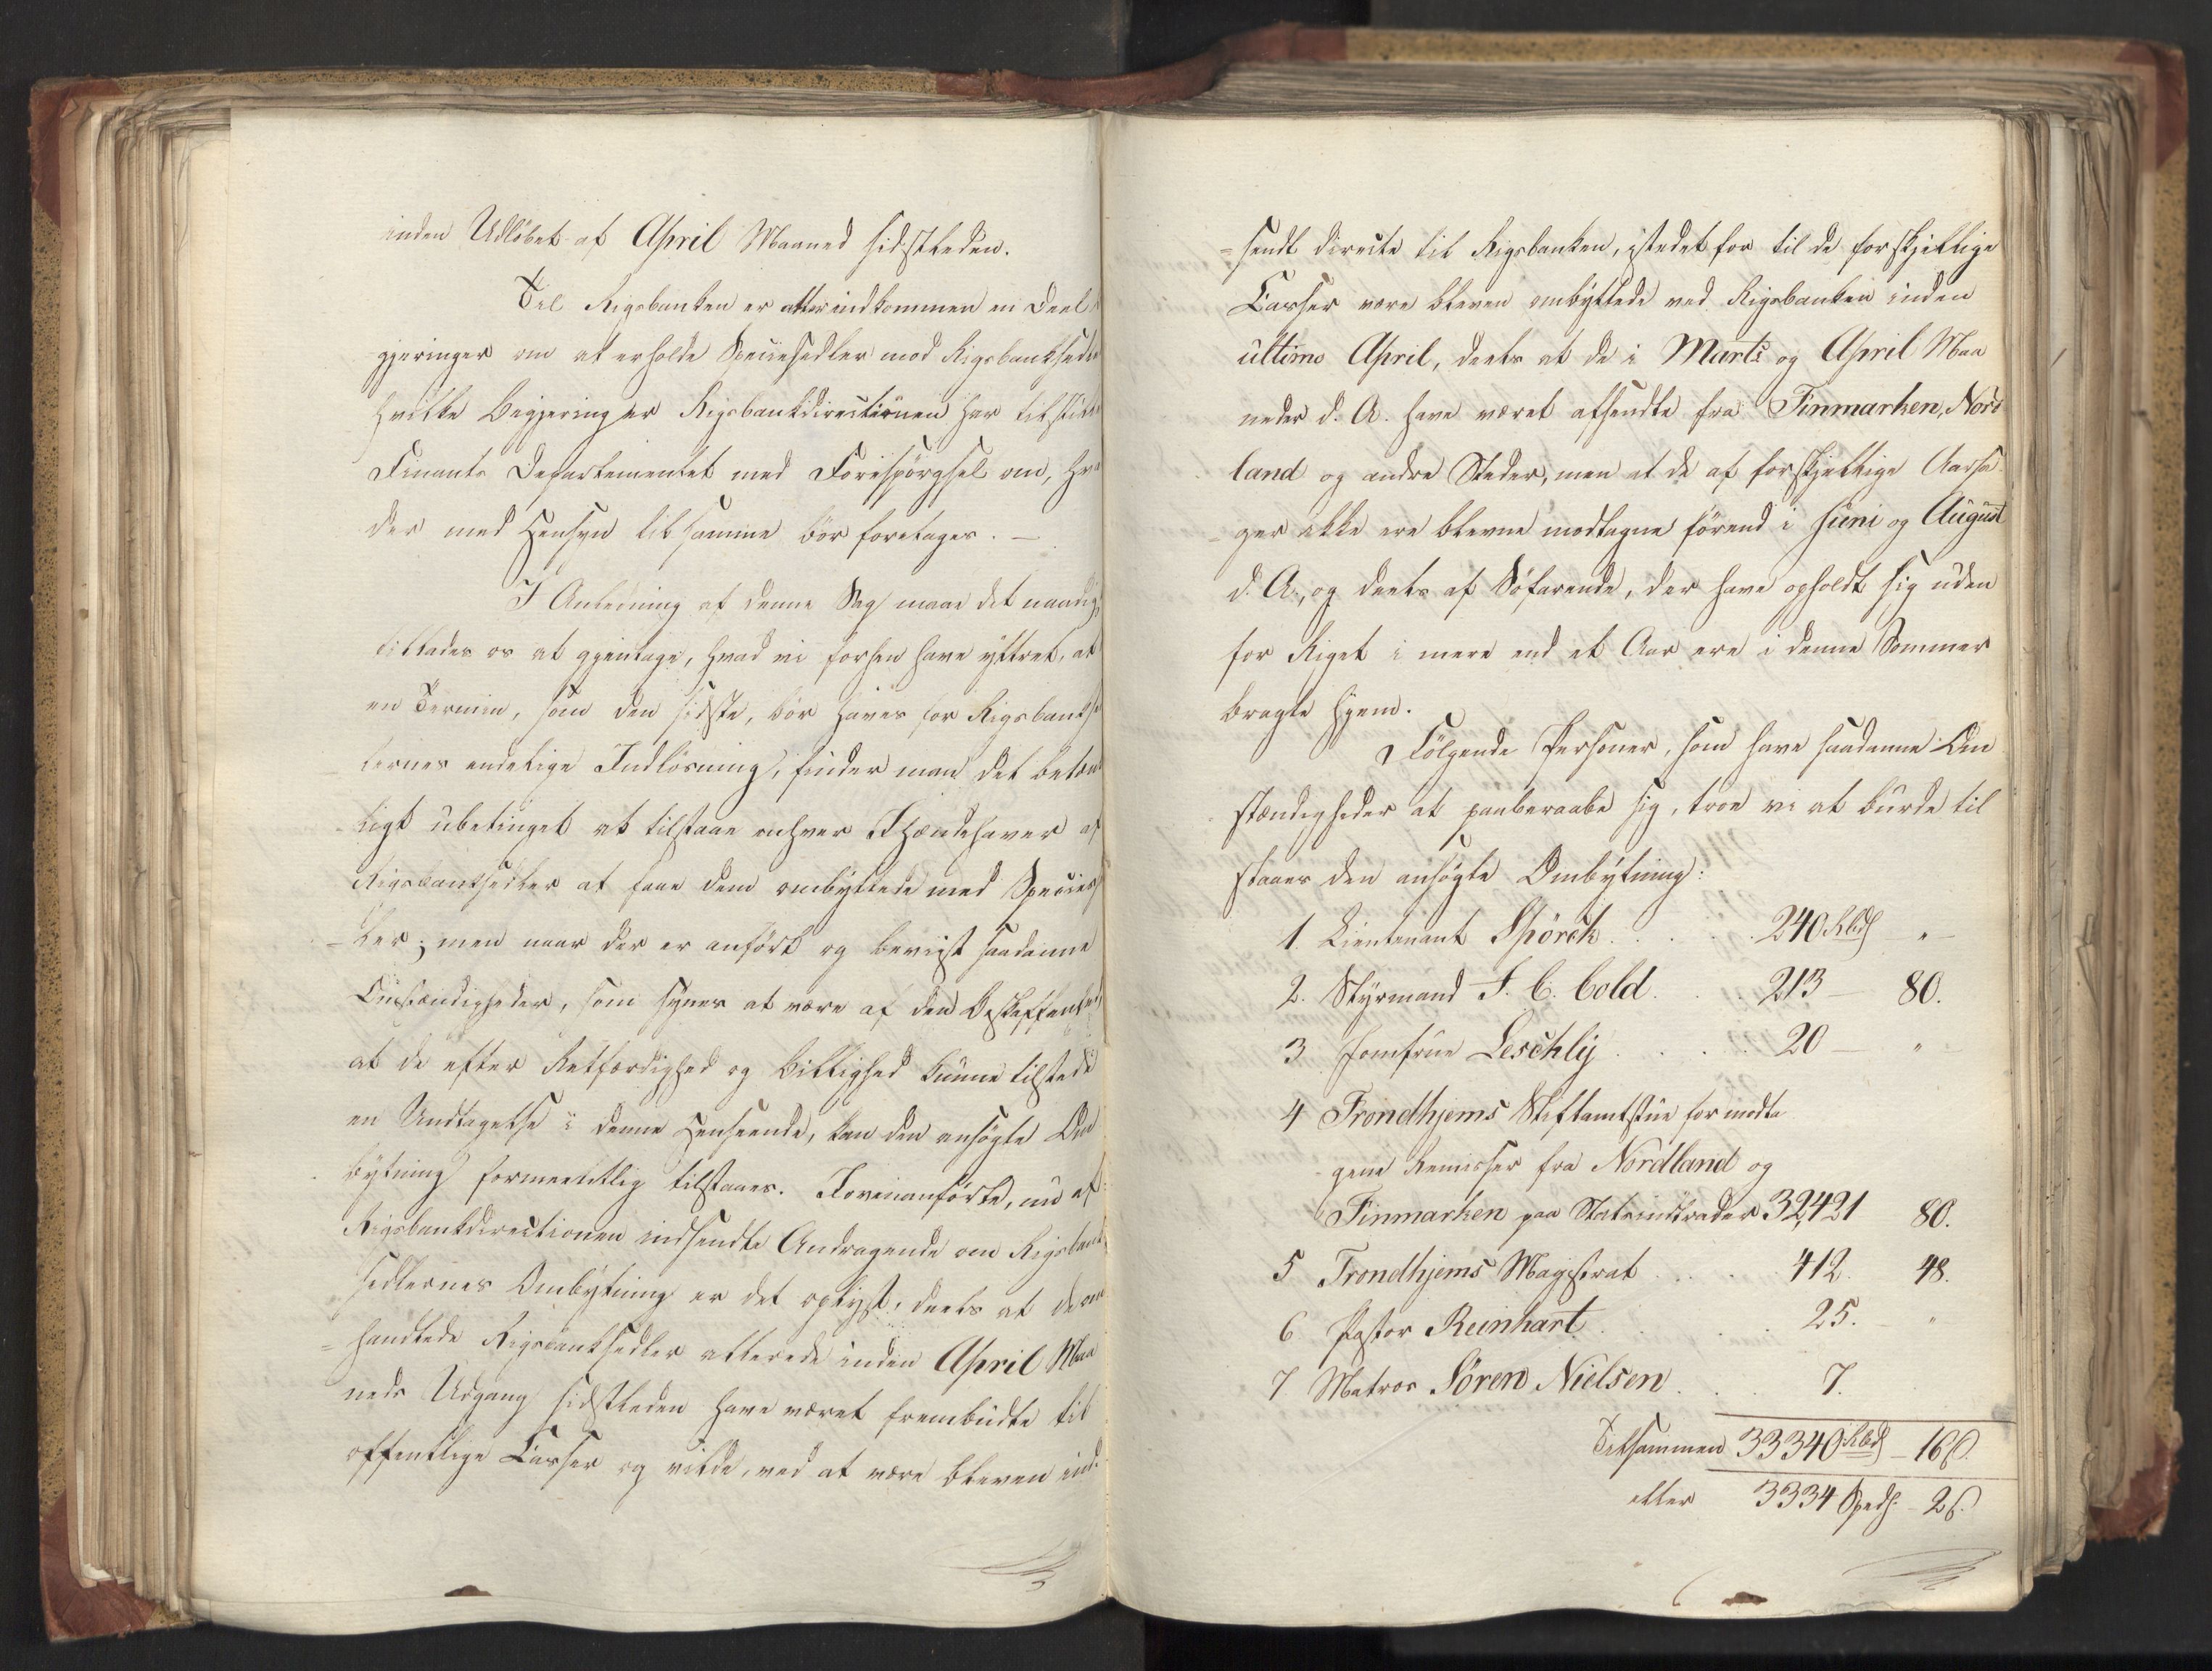 inden Udløbet af April Maaned sidstleden.
Til Rigsbanken er atter indkommen en Deel
gjeringer om at erholde Speciesedler mod Rigsbanksedler
hvilke Begjeringer Rigsbankdirectionen har tilstillet
Finants Departementet med Forespørgsel om, hva
der med Hensyn til samme bør foretages. —
I Anledning af denne Sag maae det naadigst
tillades os at gjentage, hvad vi forhen have yttret, at
en Termin, som den sidste, bør haves for Rigsbankse
lernes endelige Indløsning, finder man det betænk
ligt ubetinget at tilstaae enhver Ihændehaver af
Rigsbanksedler at faae dem ombyttede med Speciesed
ler; men naar der er anført og beviist saadanne
Omstændigheder, som synes at være af den Beskaffenhed
at de efter Retfærdighed og Billighed kunne tilstede
en Undtagelse i denne Henseende, kan den ansøgte Om
bytning formeentlig tilstaaes. I ovenanførte, nu af
Rigsbankdirectionen indsendte Andragende om Rigsbank
sedlernes Ombytning er det oplyst, deels at de om
handlede Rigsbanksedler allerede inden April Maa
neds Udgang sidstleden have været frembudte til
offentlige Casser og vilde, ved at være bleven ind-
sendt directe til Rigsbanken, istedetfor til de forskjellige
Casser være bleven ombyttede ved Rigsbanken inden
ultimo April, deels at de i Marts og April Maa
neder d. A. have været afsendte fra Finmarken, Nord
land og andre Steder, men at de af forskjellige Aarsa
ger ikke ere blevne modtagne førend i Juni og August
d. A., og deels af Søfarende, der have opholdt sig uden
for Riget i mere end et Aar ere i denne Sommer
bragte hjem.
Følgende Personer, som have saadanne Om
stændigheder at paaberaabe sig, troe vi at burde til
staaes den ansøgte Ombytning:
1 Lieutenant Spörck . . . . 240 Rbd "
2. Styrmand F. C. Cold . . . 213 — 80.
3 Jomfrue Leschly . . . . 20 — "
4 Trondhjems Stiftamtstue for modta
gene Remisser fra Nordland og
Finmarken paa Statsindtræder 32,421 80.
5 Trondhjems Magistrat . . . . 412. 48.
6 Pastor Reinhart . . . . 25. "
7 Matros Sören Nielsen . . . 7.
Tilsammen 33340 Rbd — 16 s.
eller 3334 Spd. — 2 s.